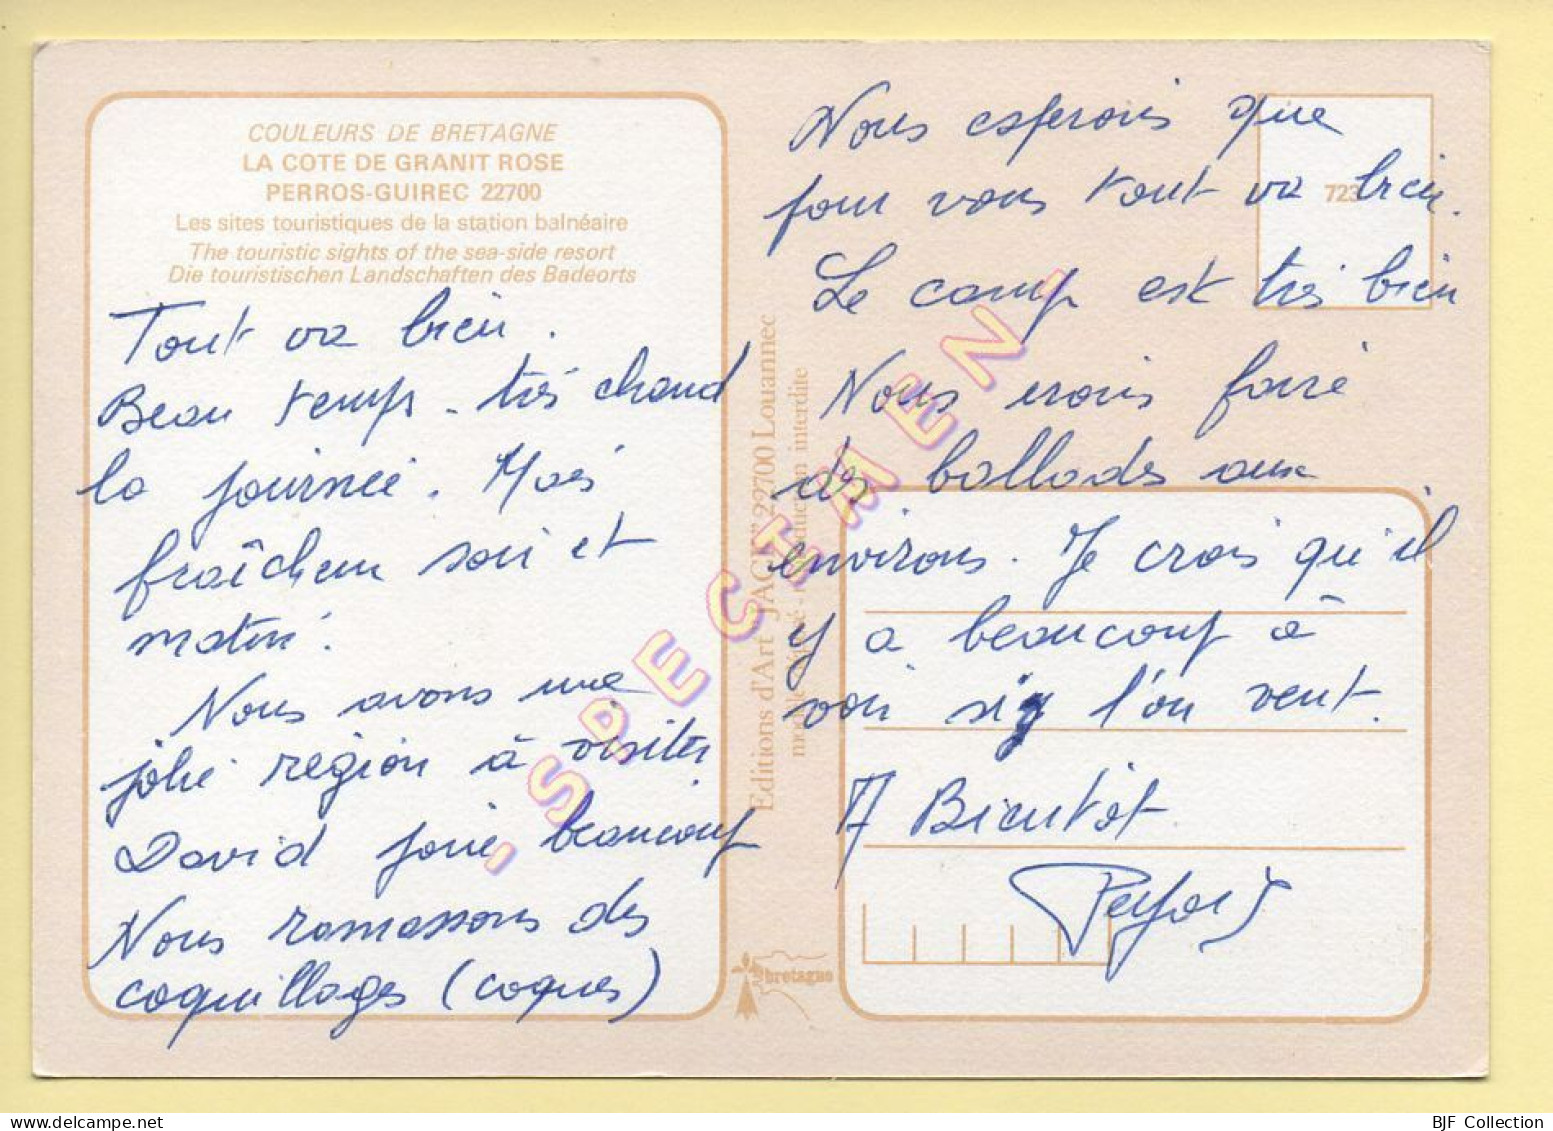 COULEURS DE BRETAGNE
LA COTE DE GRANIT ROSE
PERROS-GUIREC 22700
Les sites touristiques de la station balnéaire
The touristic sights of the sea-side resort
Die touristischen Landschaften des Badeorts
Tout va bien.
Beau temps - très chaud
la journée. Mais
fraîcheur soir et
matin.
Nous avons une
jolie région à visiter
David joue beaucoup
Nous ramassons des
coquillages (coques)
Editions d'Art "JACK" 22700 Louannec
reproduction interdite
bretagne
- SPECIMEN -
723
Nous esperons que
pour vous tout va bien.
Le camp est très bien
Nous irons faire
des ballades aux
environs. Je crois qu'il
y a beaucoup à
voir si l'on veut.
A Bientôt
BJF Collection